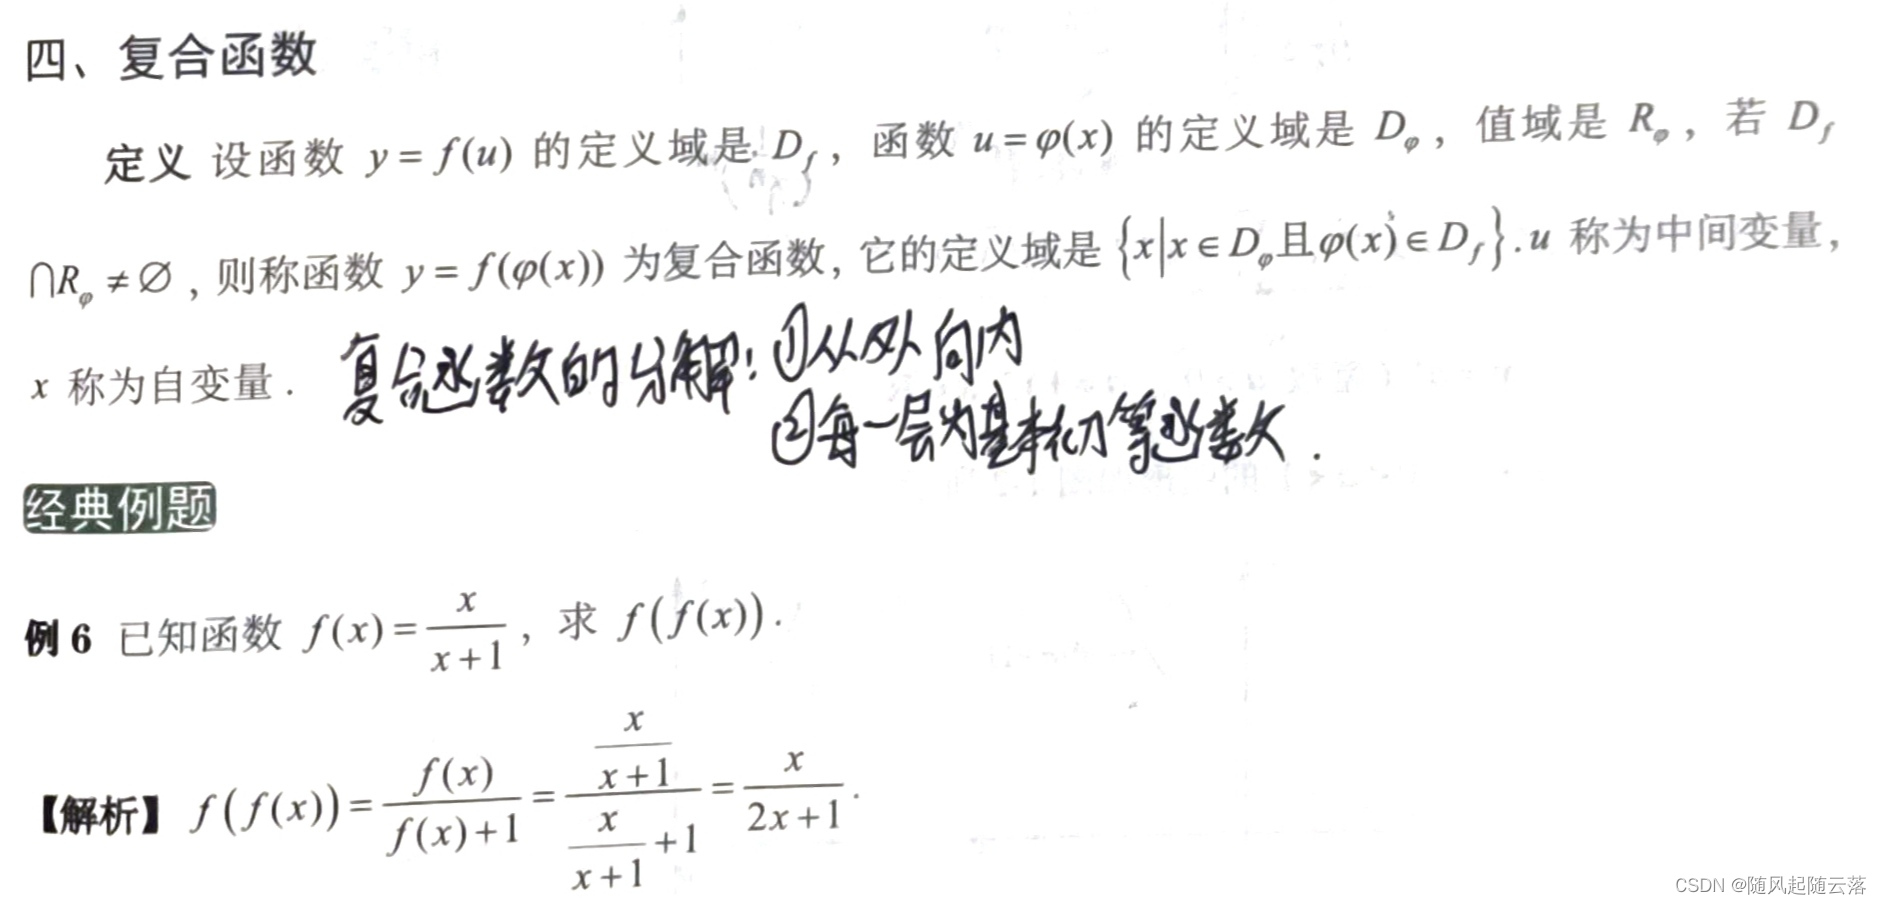 四、复合函数
定义 设函数 y = f(u) 的定义域是 D_f，函数 u = φ(x) 的定义域是 D_φ，值域是 R_φ，若 D_f
∩R_φ ≠ ∅，则称函数 y = f(φ(x)) 为复合函数，它的定义域是 {x|x ∈ D_φ且φ(x) ∈ D_f}.u 称为中间变量，
x 称为自变量．
复合函数的分解：①从外向内
②每一层为基本初等函数．
经典例题
例 6 已知函数 f(x) = x/(x+1)，求 f(f(x))．
【解析】 f(f(x)) = f(x)/(f(x)+1) = (x/(x+1))/(x/(x+1)+1) = x/(2x+1)．
CSDN @随风起随云落